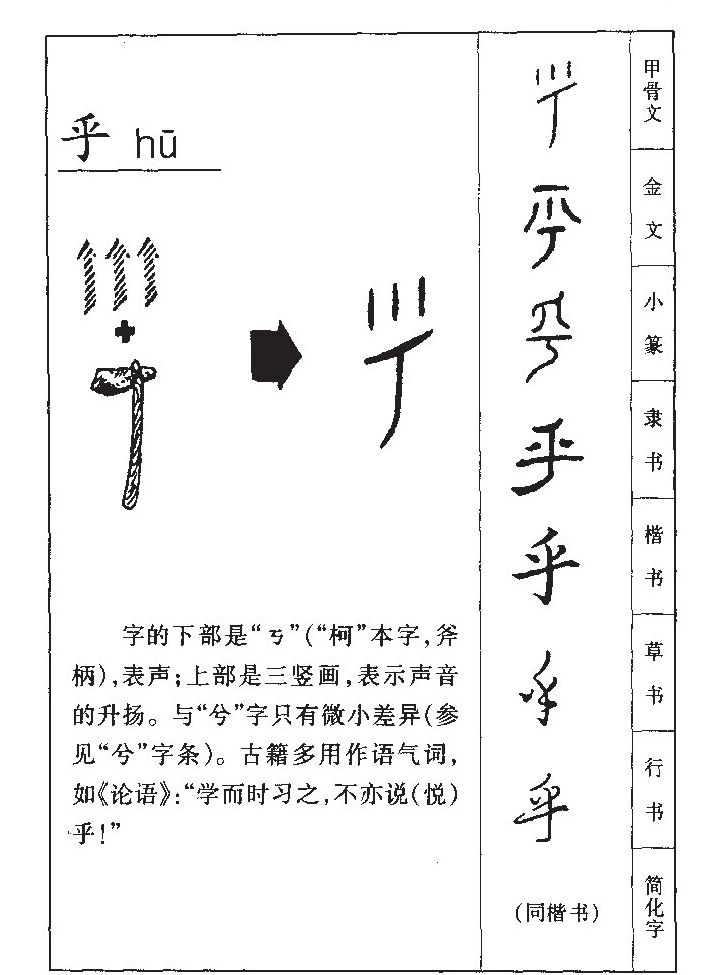 乎 hū
字的下部是“ㄎ”(“柯”本字,斧
柄),表声;上部是三竖画,表示声音
的升扬。与“兮”字只有微小差异(参
见“兮”字条)。古籍多用作语气词,
如《论语》:“学而时习之,不亦说(悦)
乎!”
甲骨文
金文
小篆
隶书
楷书
草书
行书
简化字
乎
乎
乎
乎
乎
乎
乎
(同楷书)